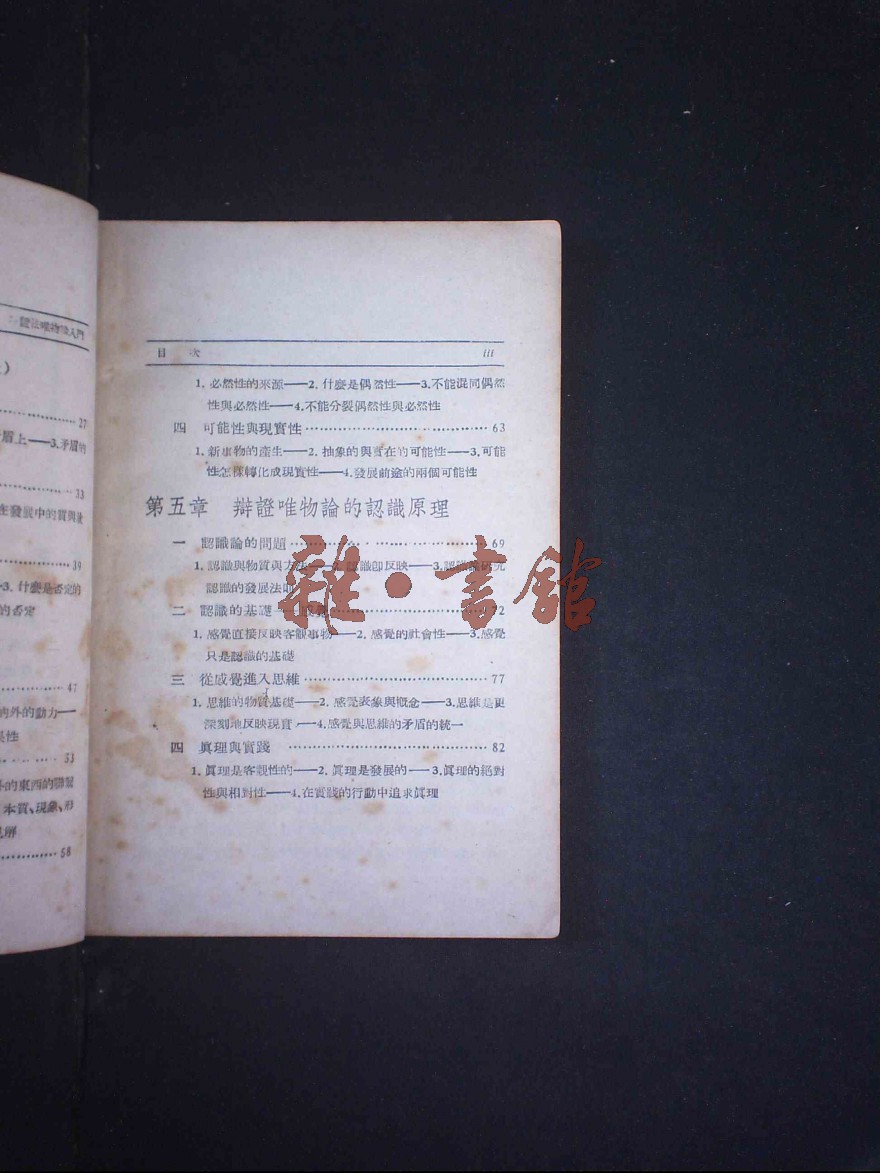 入門
）
27
盾上——3.矛盾的
33
在發展中的質與量
39
3. 什麼是否定的
的否定
47
內外的動力——
性
53
的東西的聯繫
本質、現象、形
58
目 次 iii
1. 必然性的來源——2. 什麼是偶然性——3.不能混同偶然
性與必然性——4.不能分裂偶然性與必然性
四 可能性與現實性 63
1. 新事物的產生——2. 抽象的與實在的可能性——3.可能
性怎樣轉化成現實性——4.發展前途的兩個可能性
第五章 辯證唯物論的認識原理
一 認識論的問題 69
1. 認識與物質與方法 認識即反映——3.認識 研究
認識的發展法則
二 認識的基礎 72
1. 感覺直接反映客觀事物——2. 感覺的社會性——3.感覺
只是認識的基礎
三 從感覺進入思維 77
1. 思維的物質基礎——2. 感覺表象與概念——3.思維是更
深刻地反映現實——4.感覺與思維的矛盾的統一
四 眞理與實踐 82
1. 眞理是客觀性的——2. 眞理是發展的——3.眞理的絕對
性與相對性——4.在實踐的行動中追求眞理
雜·書館